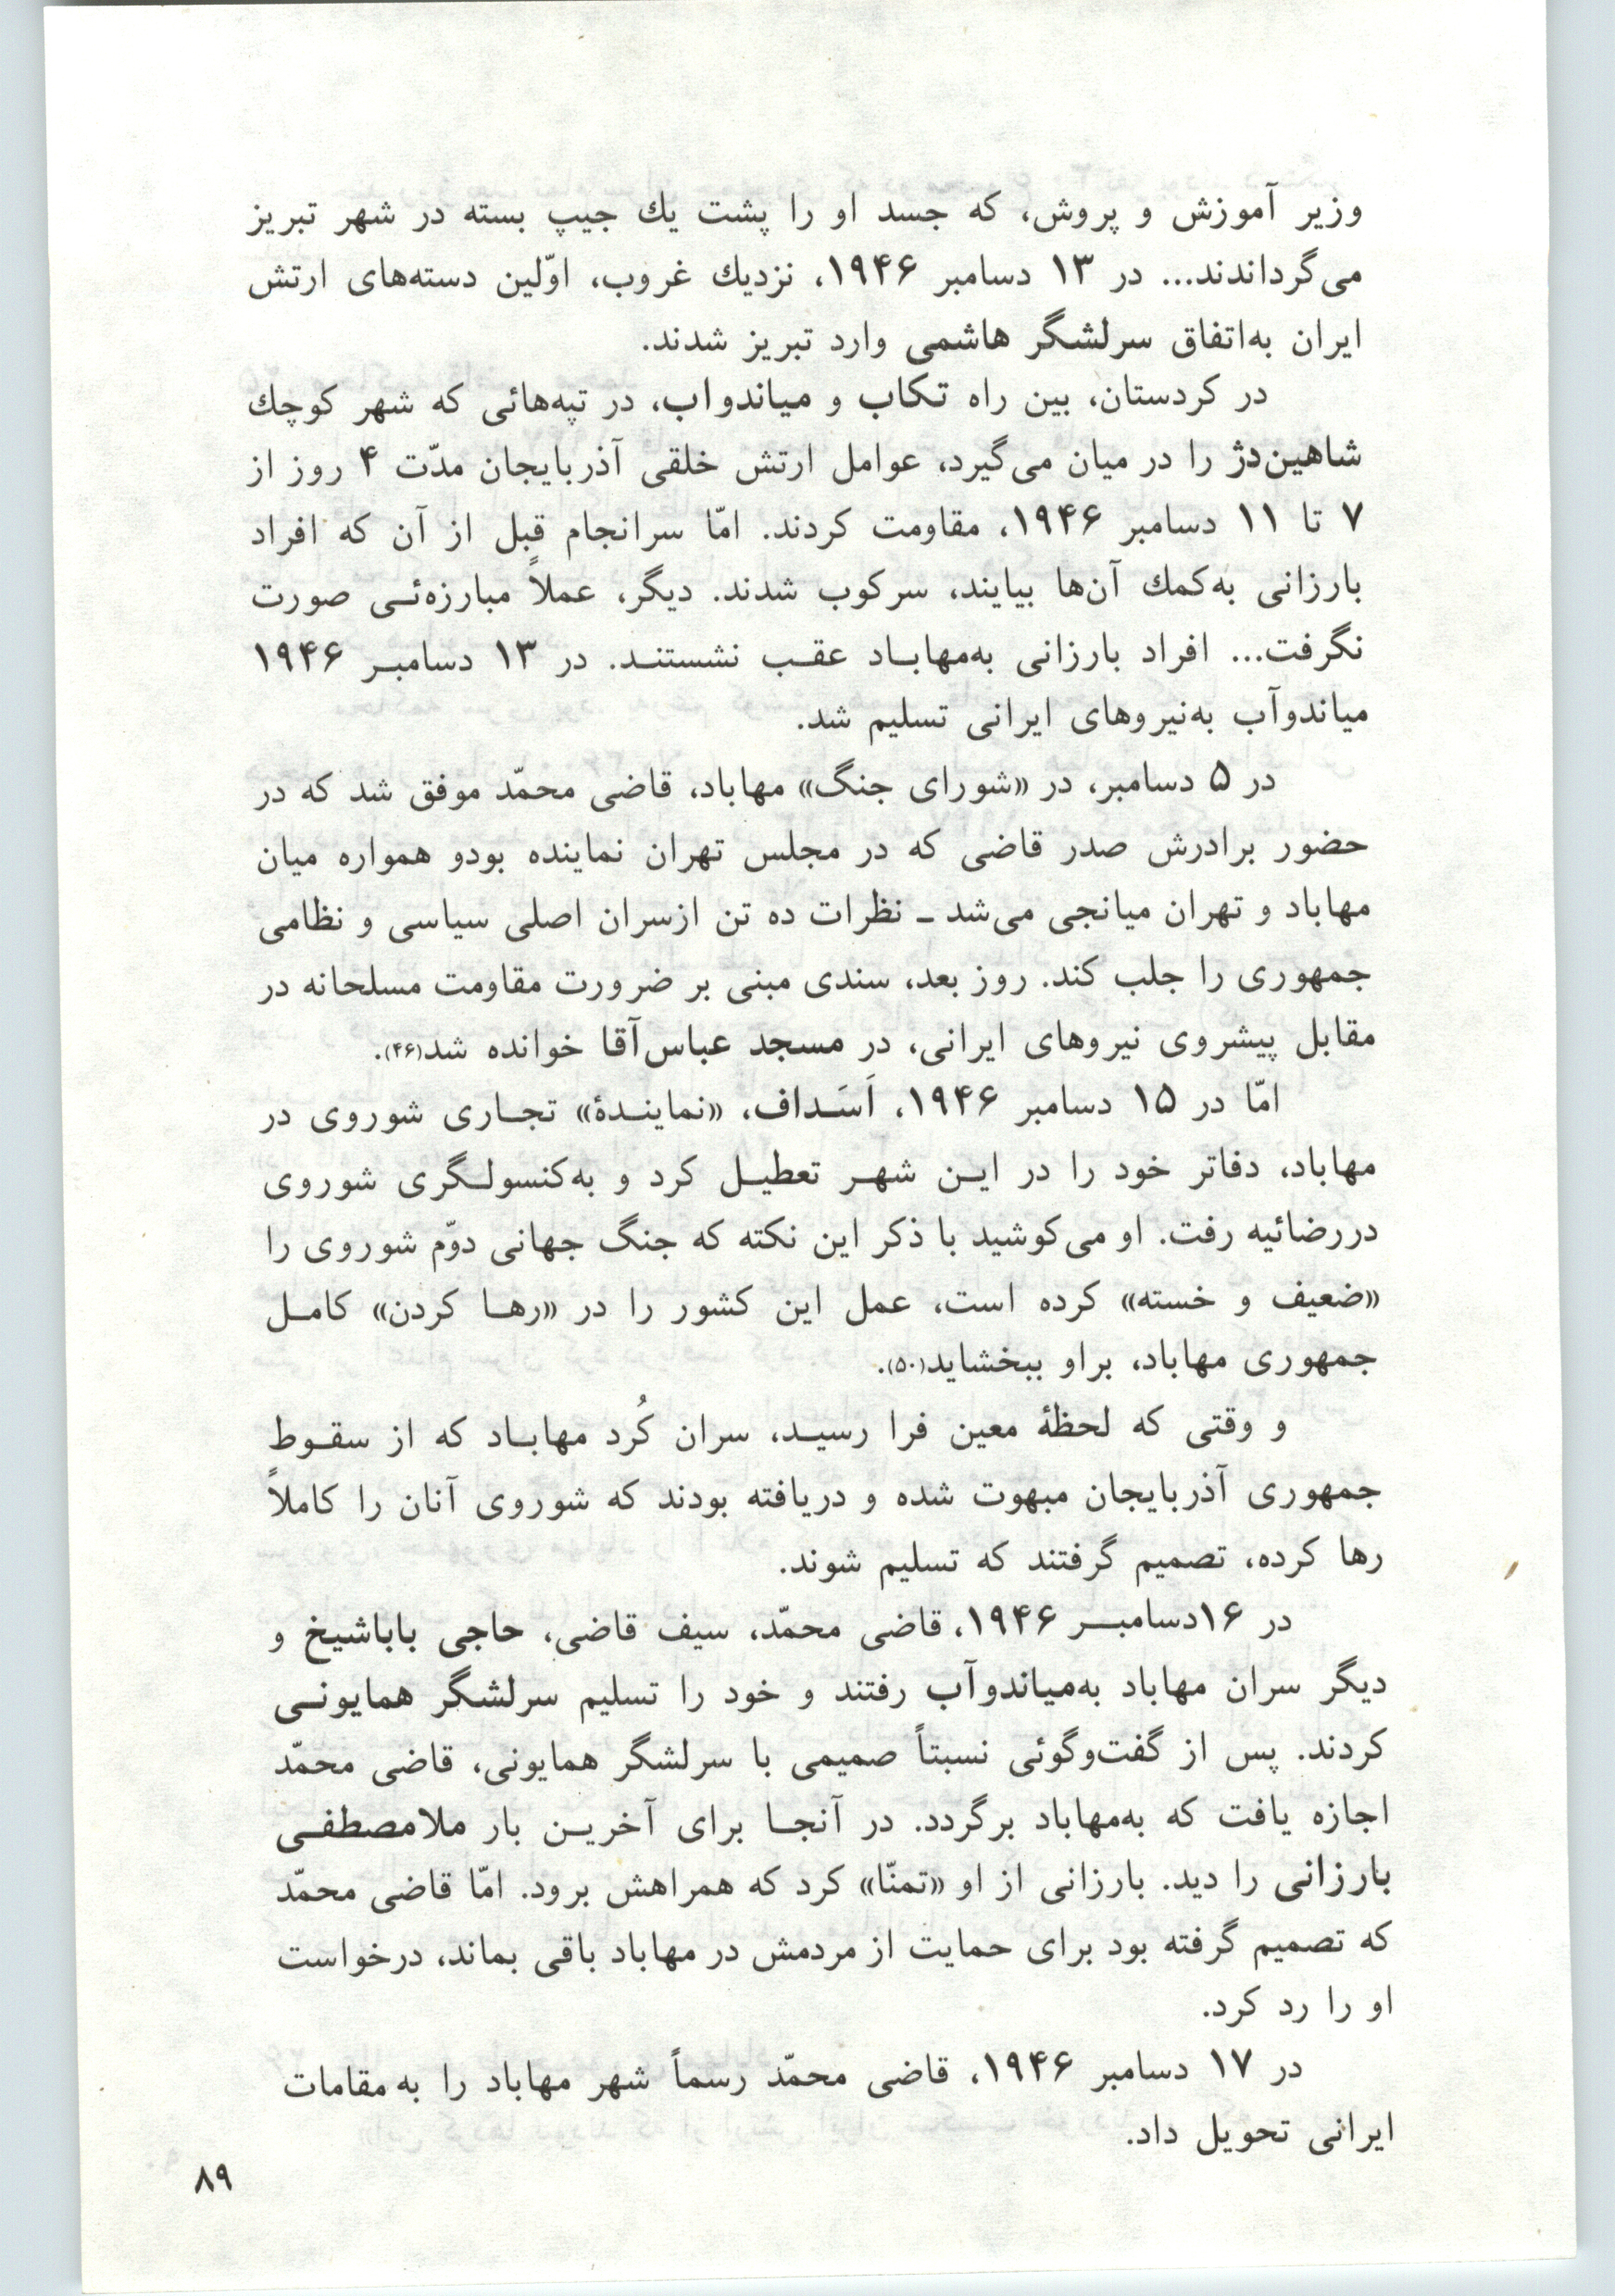 وزیر آموزش و پروش، که جسد او را پشت یك جیپ بسته در شهر تبریز
می‌گرداندند... در ۱۳ دسامبر ۱۹۴۶، نزدیك غروب، اوّلین دسته‌های ارتش
ایران به‌اتفاق سرلشگر هاشمی وارد تبریز شدند.
در کردستان، بین راه تکاب و میاندواب، در تپه‌هائی که شهر کوچك
شاهین‌دژ را در میان می‌گیرد، عوامل ارتش خلقی آذربایجان مدّت ۴ روز از
۷ تا ۱۱ دسامبر ۱۹۴۶، مقاومت کردند. امّا سرانجام قبل از آن که افراد
بارزانی به‌کمك آن‌ها بیایند، سرکوب شدند. دیگر، عملاً مبارزه‌ئی صورت
نگرفت... افراد بارزانی به‌مهاباد عقب نشستند. در ۱۳ دسامبر ۱۹۴۶
میاندوآب به‌نیروهای ایرانی تسلیم شد.
در ۵ دسامبر، در «شورای جنگ» مهاباد، قاضی محمّد موفق شد که در
حضور برادرش صدر قاضی که در مجلس تهران نماینده بودو همواره میان
مهاباد و تهران میانجی می‌شد ـ نظرات ده تن ازسران اصلی سیاسی و نظامی
جمهوری را جلب کند. روز بعد، سندی مبنی بر ضرورت مقاومت مسلحانه در
مقابل پیشروی نیروهای ایرانی، در مسجد عباس‌آقا خوانده شد(۴۶).
امّا در ۱۵ دسامبر ۱۹۴۶، اَسَداف، «نمایندهٔ» تجاری شوروی در
مهاباد، دفاتر خود را در این شهر تعطیل کرد و به‌کنسولگری شوروی
دررضائیه رفت. او می‌کوشید با ذکر این نکته که جنگ جهانی دوّم شوروی را
«ضعیف و خسته» کرده است، عمل این کشور را در «رها کردن» کامل
جمهوری مهاباد، براو ببخشاید(۵۰).
و وقتی که لحظهٔ معین فرا رسید، سران کُرد مهاباد که از سقوط
جمهوری آذربایجان مبهوت شده و دریافته بودند که شوروی آنان را کاملاً
رها کرده، تصمیم گرفتند که تسلیم شوند.
در ۱۶دسامبر ۱۹۴۶، قاضی محمّد، سیف قاضی، حاجی باباشیخ و
دیگر سران مهاباد به‌میاندوآب رفتند و خود را تسلیم سرلشگر همایونی
کردند. پس از گفت‌وگوئی نسبتاً صمیمی با سرلشگر همایونی، قاضی محمّد
اجازه یافت که به‌مهاباد برگردد. در آنجا برای آخرین بار ملامصطفی
بارزانی را دید. بارزانی از او «تمنّا» کرد که همراهش برود. امّا قاضی محمّد
که تصمیم گرفته بود برای حمایت از مردمش در مهاباد باقی بماند، درخواست
او را رد کرد.
در ۱۷ دسامبر ۱۹۴۶، قاضی محمّد رسماً شهر مهاباد را به مقامات
ایرانی تحویل داد.
۸۹